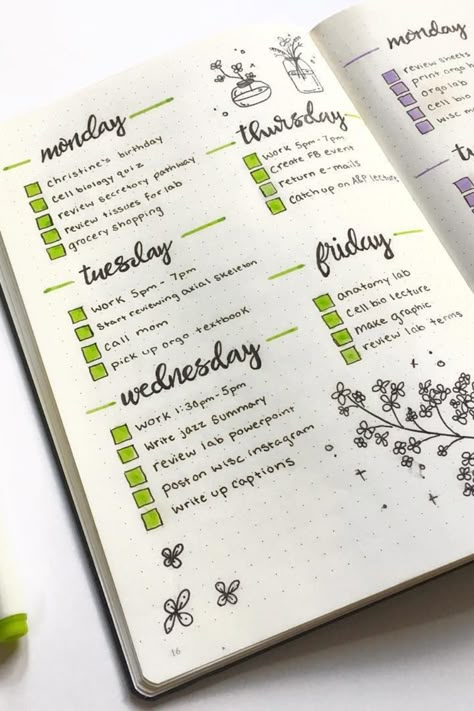 monday
Christine's birthday
cell biology quiz
review secretory pathway
review tissues for lab
grocery shopping
tuesday
work 5pm - 7pm
start reviewing axial skeleton
call mom
pick up orgo textbook
wednesday
work 1:30pm-5pm
write jazz summary
review lab powerpoint
post on wisc instagram
write up captions
thursday
work 5pm-7pm
create FB event
return e-mails
catch up on A&P lecture
friday
anatomy lab
cell bio lecture
make graphic
review lab terms
16
monday
review sheets
print orgo
orgo lab
cell bio
wisc